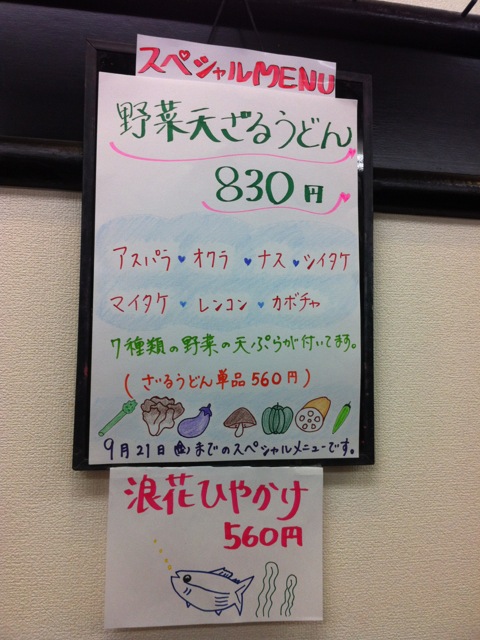 スペシャルMENU
野菜天ざるうどん
830円
アスパラ・オクラ・ナス・シイタケ
マイタケ・レンコン・カボチャ
7種類の野菜の天ぷらが付いてます。
(ざるうどん単品560円)
9月21日(金)までのスペシャルメニューです。
浪花ひやかけ
560円